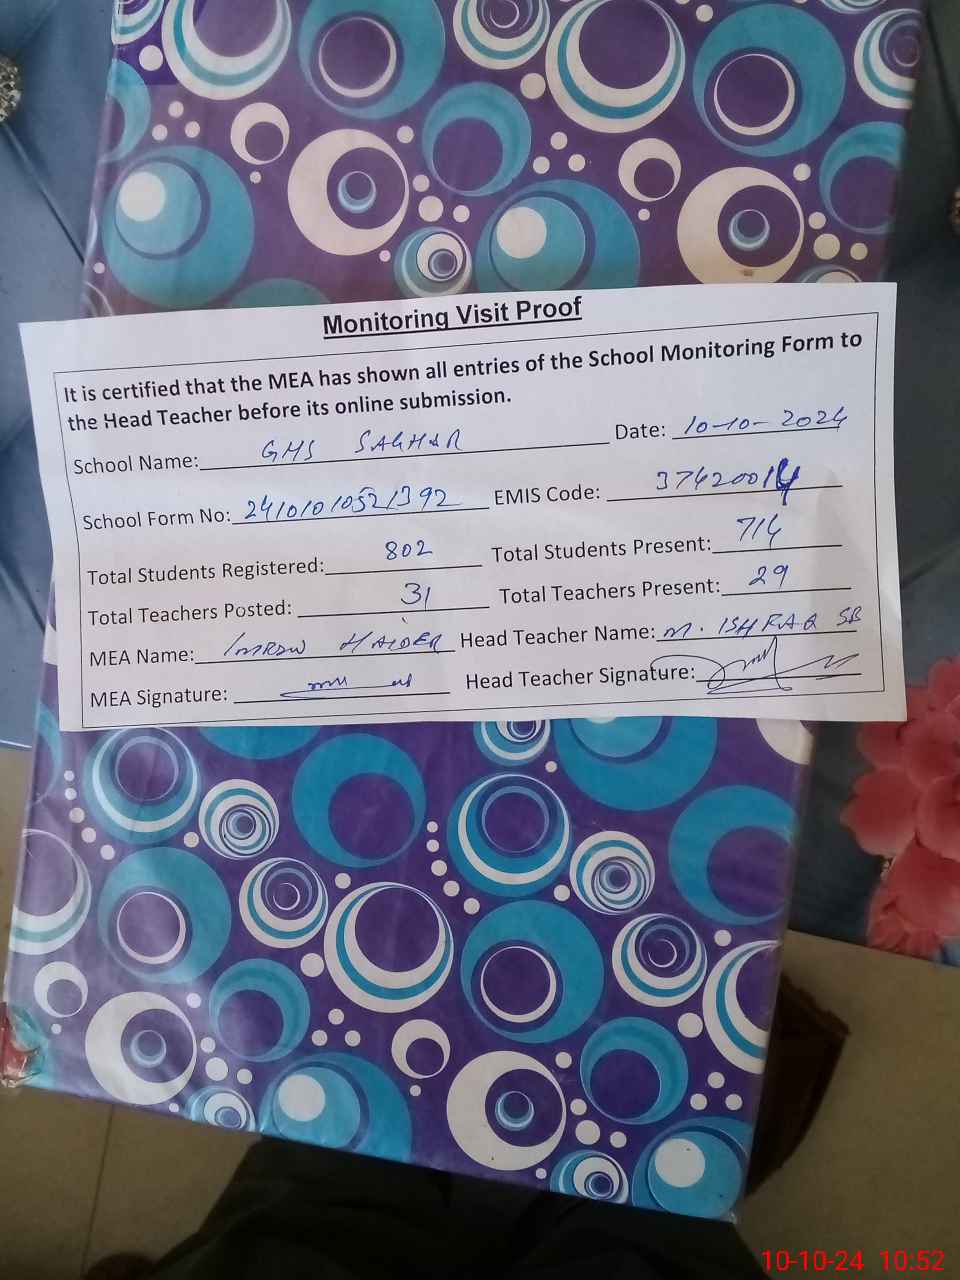 Monitoring Visit Proof
It is certified that the MEA has shown all entries of the School Monitoring Form to
the Head Teacher before its online submission.
School Name: GHS SAGHAR Date: 10-10-2024
School Form No: 24101010521392 EMIS Code: 37420014
Total Students Registered: 802 Total Students Present: 714
Total Teachers Posted: 31 Total Teachers Present: 29
MEA Name: IMRAN HAIDER Head Teacher Name: M. ISHFAQ SB
MEA Signature: Head Teacher Signature:
10-10-24 10:52